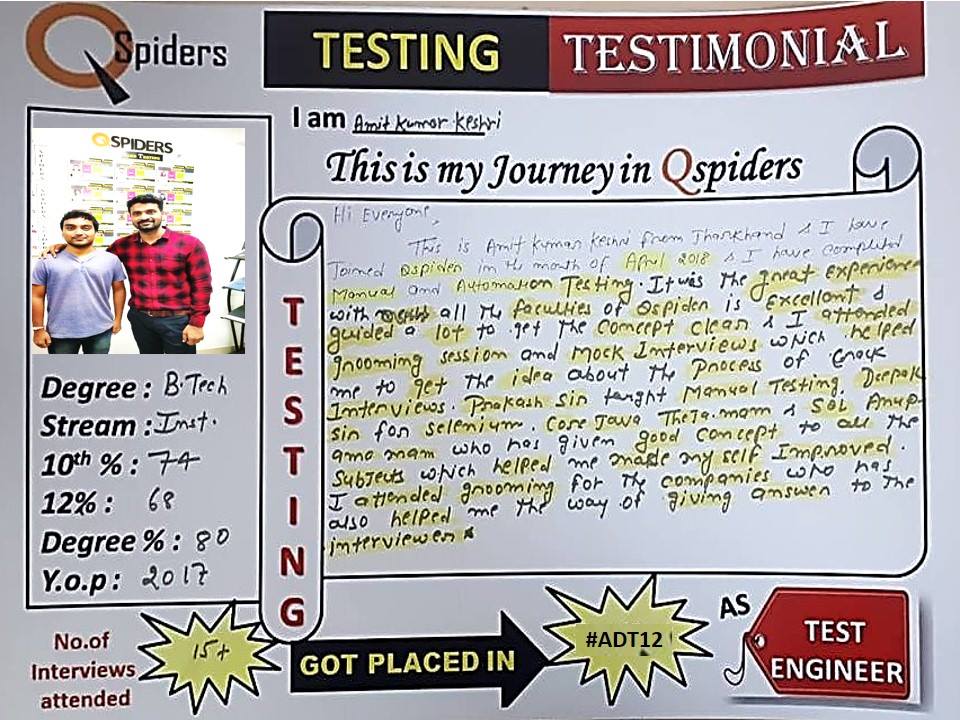 QSpiders
TESTING TESTIMONIAL
I am Amit Kumar Keshri
This is my Journey in Qspiders
QSPIDERS
Degree : B.Tech
Stream : Inst.
10th % : 74
12% : 68
Degree % : 80
Y.o.p : 2017
TESTING
Hi Everyone,
This is Amit Kumar Keshri from Jharkhand & I have
Joined Qspiders in the month of April 2018 & I have completed
Manual and Automation Testing. It was the great experience
with all the faculties of Qspiders is Excellent &
guided a lot to get the concept clear & I attended
grooming session and Mock Interviews which helped
me to get the idea about the Process of Crack
Interviews. Prakash sir taught Manual Testing, Deepak
sir for selenium. Core Java Theja.mam & SQL Anup-
ama mam who has given good concept to all the
Subjects which helped me made my self Improved.
I attended grooming for the companies who has
also helped me the way of giving answer to the
interviewer
No.of
Interviews
attended
15+
GOT PLACED IN
#ADT12
AS
TEST
ENGINEER